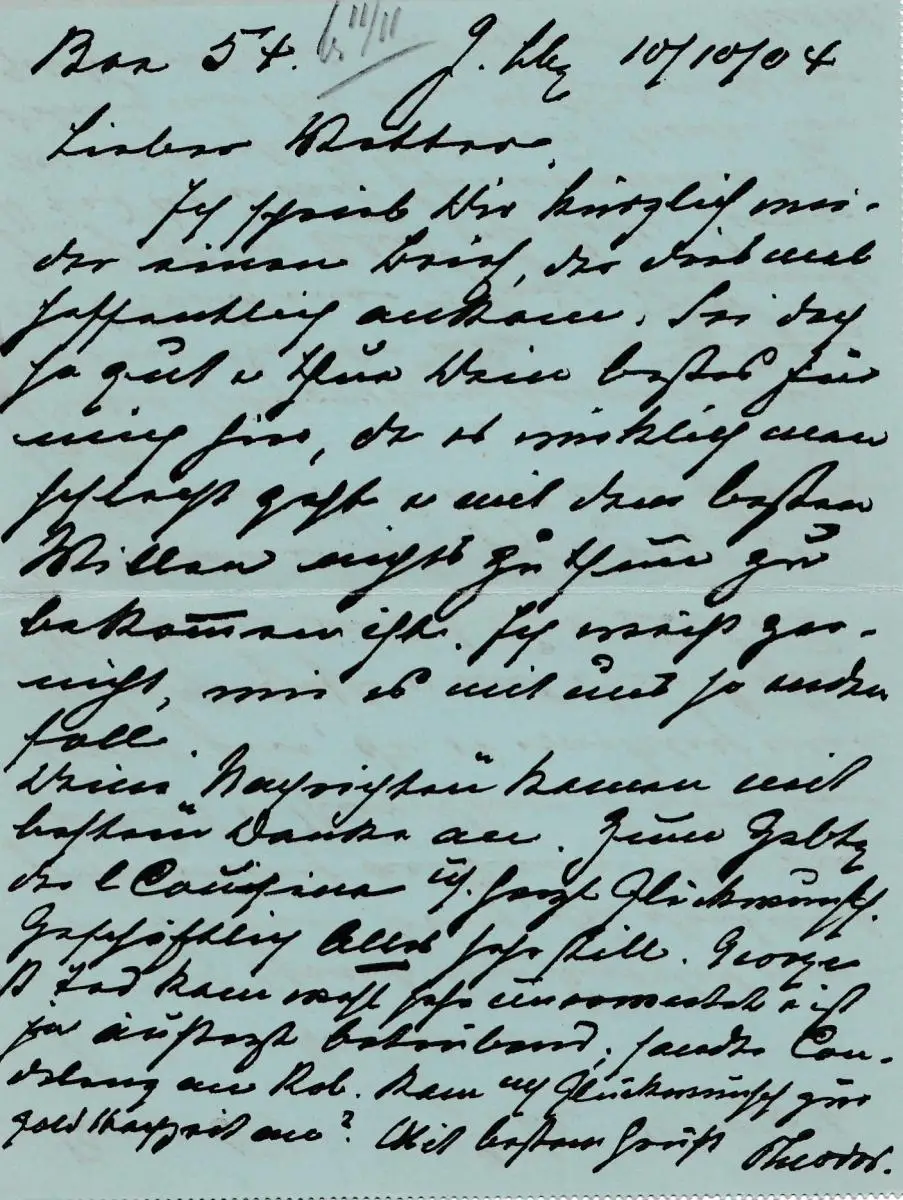 Box 54. b 11/11 J. Bbg 10/10/04
Lieber Vetter.
Ich schrieb Dir kürzlich wie-
der einen Brief, der diesmal
hoffentlich ankam. Sei doch
so gut u thue Dein bestes für
mich hier, da es wirklich man
schlecht geht u mit dem besten
Willen nichts zu thun zu
bekommen ist. Ich weiß gar-
nicht, wie es mit uns so enden
soll.
Deine Nachrichten kamen mit
bestem Danke an. Zum Gebtg
der l Cousine m. herzl Glückwunsch.
Geschäftlich Alles sehr still. Georges
B Tod kam wohl sehr unerwartet u ist
ja äußerst betrübend, sandte Con-
dolenz an Rob. Kam m Glückwunsch zur
gold Hochzeit an? Mit bestem Gruß Theodor.